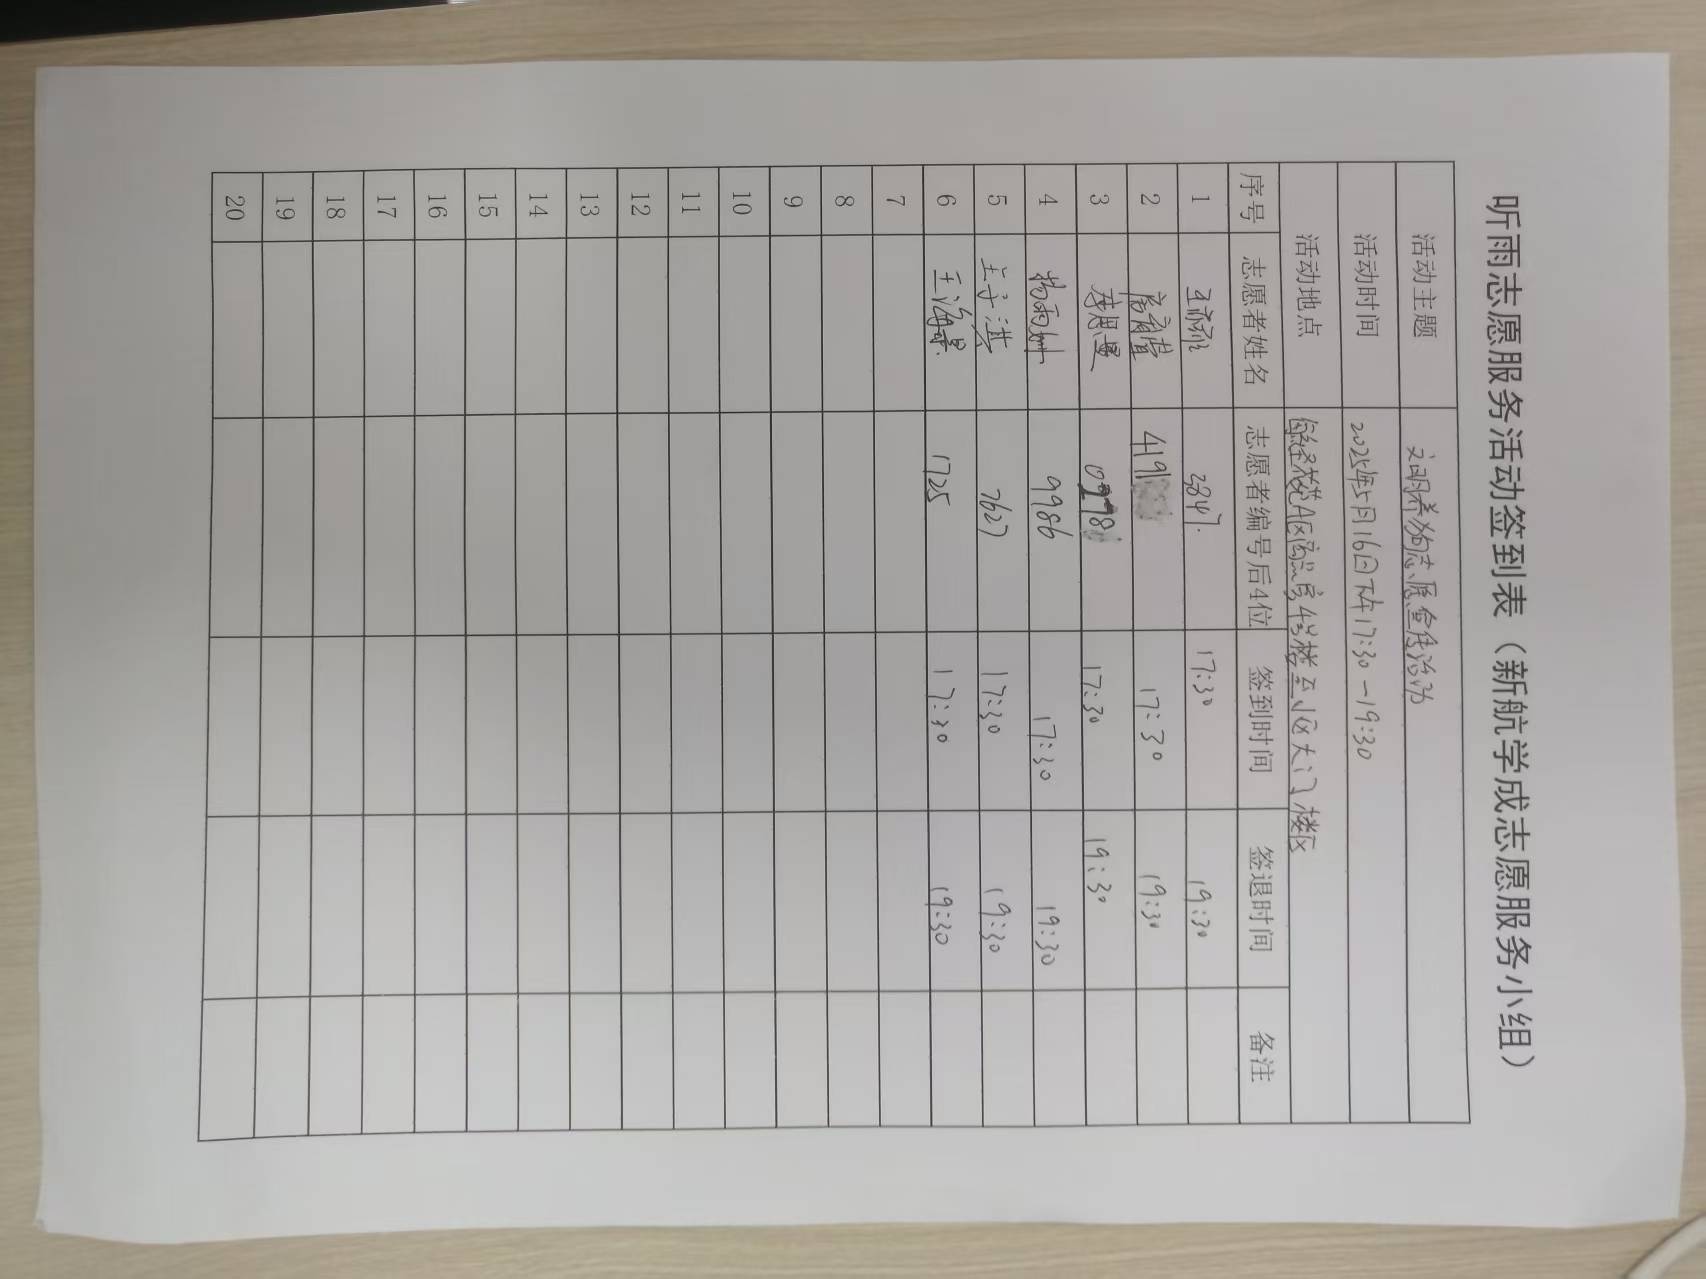 听雨志愿服务活动签到表（新航学成志愿服务小组）
活动主题 文明养狗志愿宣传活动
活动时间 2025年5月16日下午17:30-19:30
活动地点 A区 4号楼至小区大门 楼区
序号 志愿者姓名 志愿者编号后4位 签到时间 签退时间 备注
1 王 3847. 17:30 19:30
2 419 17:30 19:30
3 李思 17:30 19:30
4 杨雨 9986 17:30 19:30
5 王子淇 7627 17:30 19:30
6 王海 1725 17:30 19:30
7
8
9
10
11
12
13
14
15
16
17
18
19
20